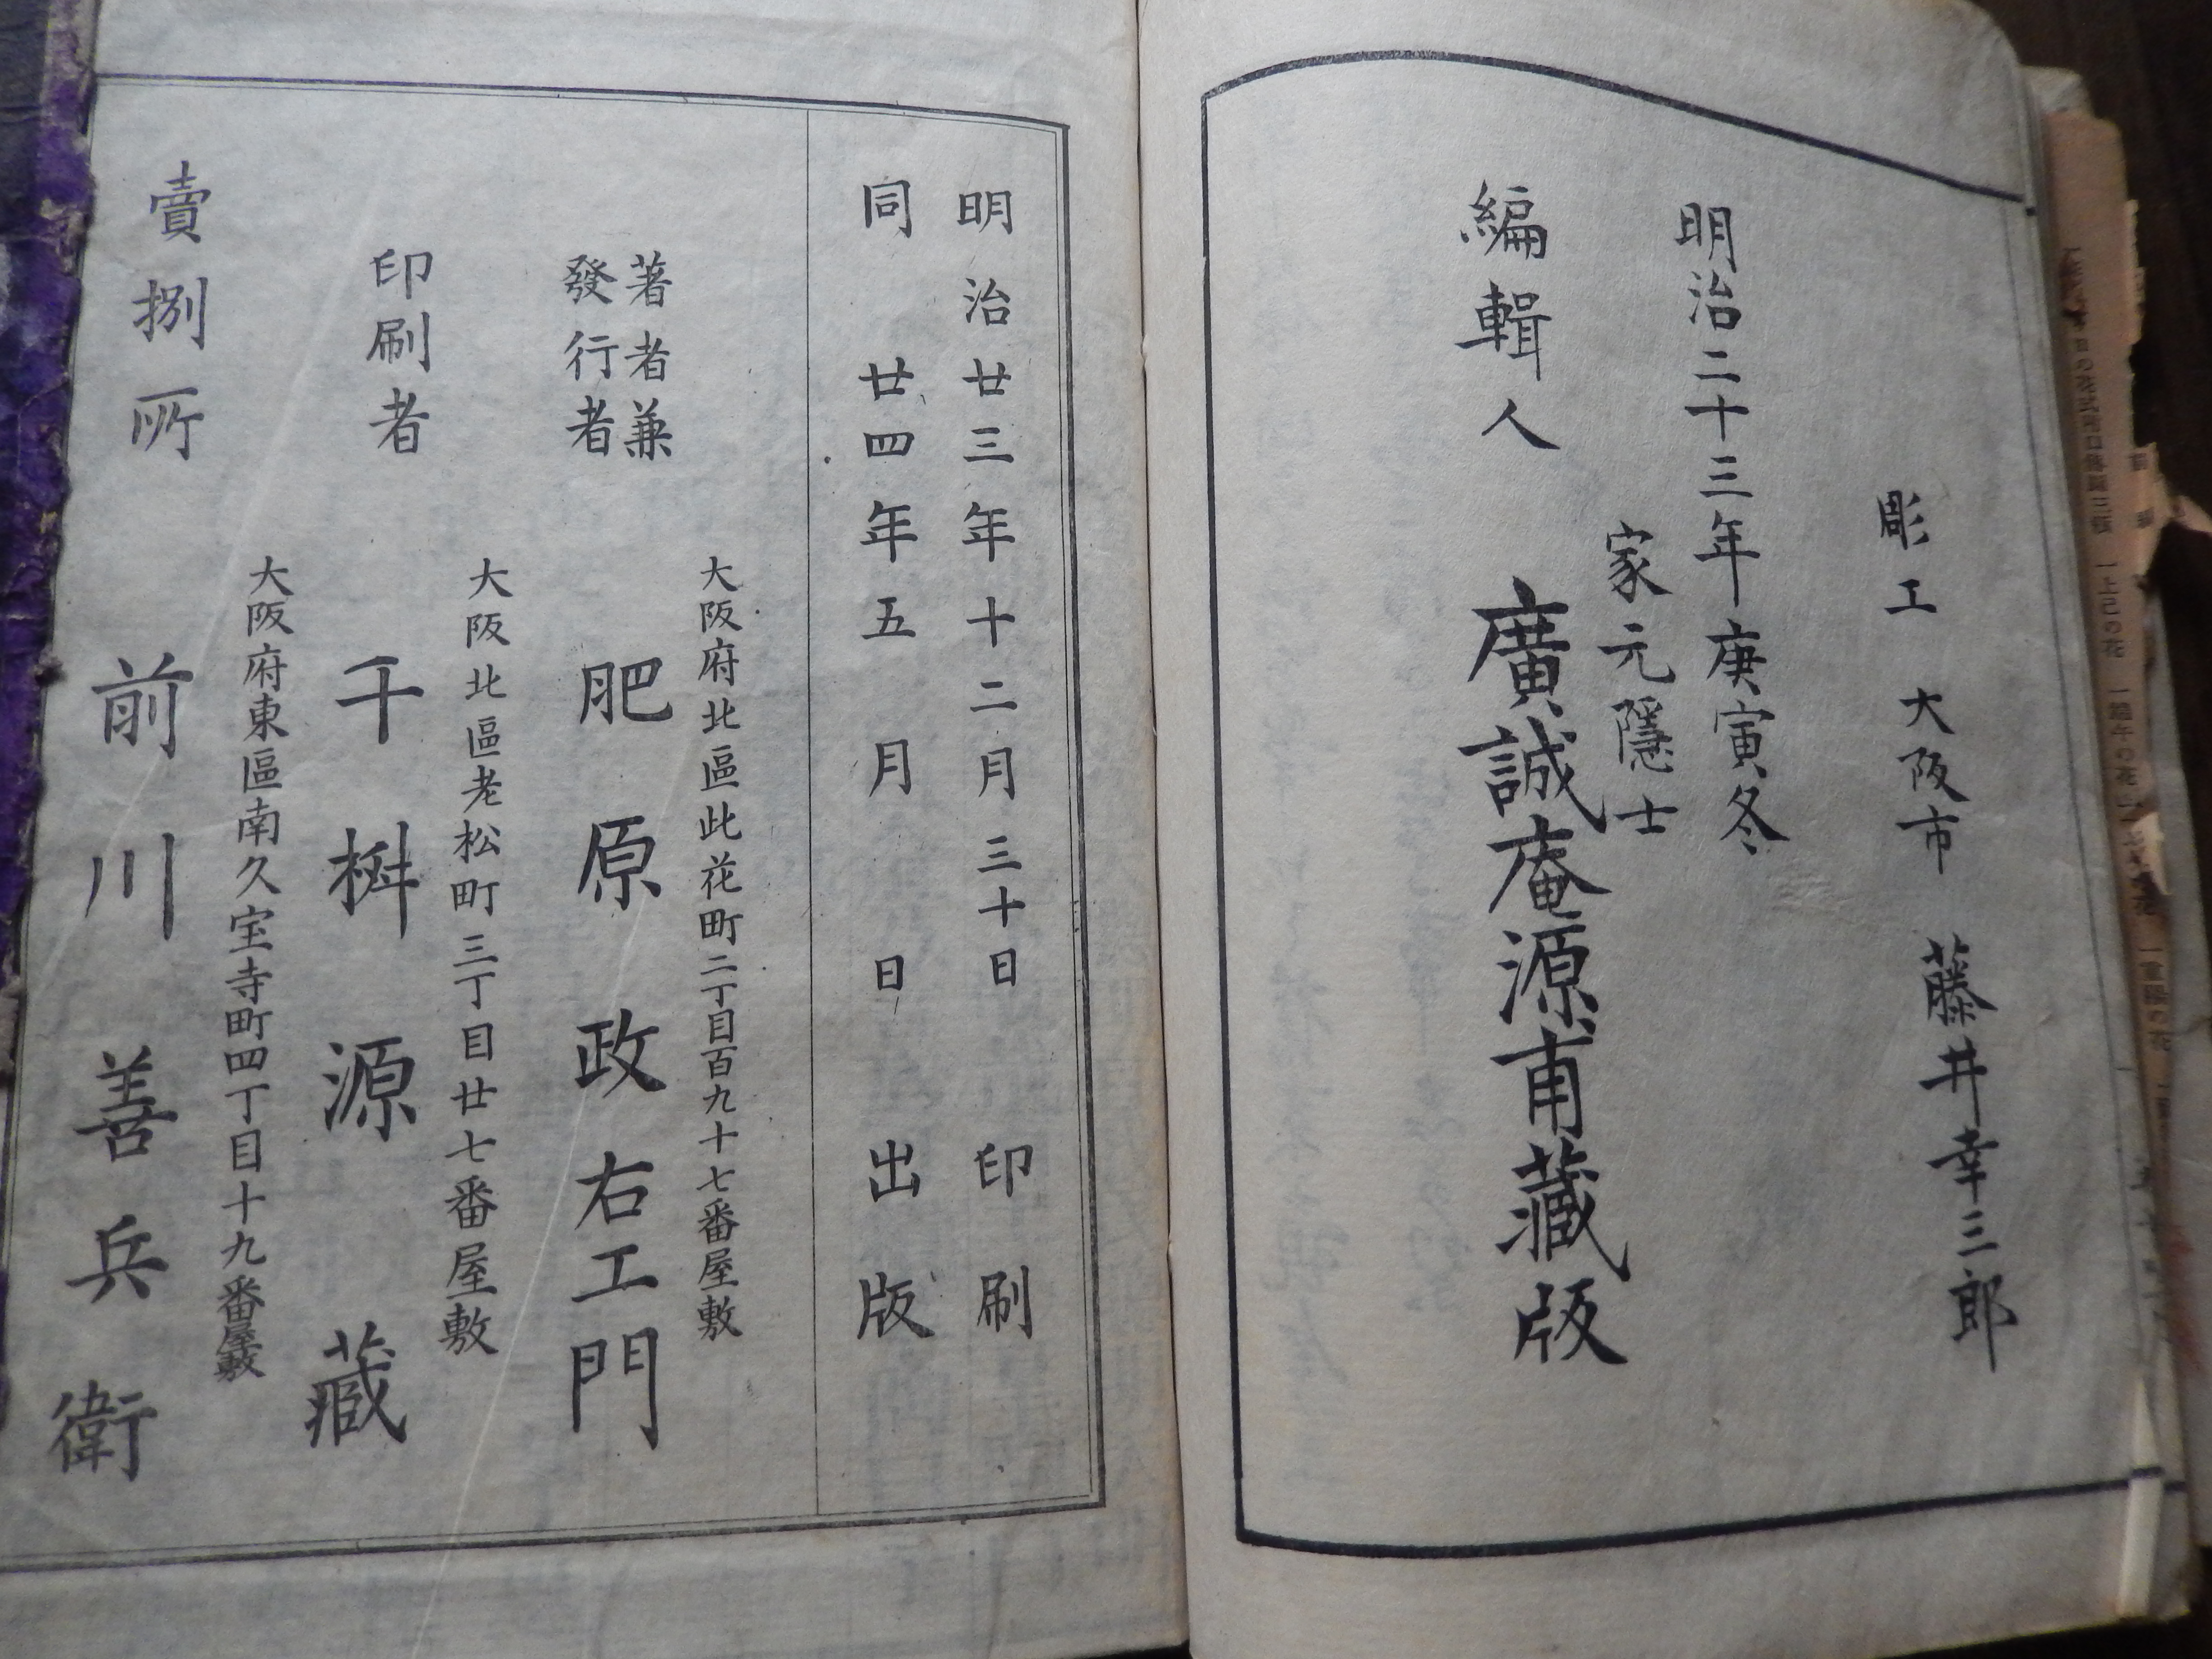 彫工　大阪市　藤井幸三郎
明治二十三年庚寅冬
家元隠士
編輯人　廣誠庵源甫蔵版
明治廿三年十二月三十日　印刷
同　廿四年五月　日　出版
大阪府北區此花町二丁目百九十七番屋敷
著者兼
發行者　肥原政右エ門
大阪北區老松町三丁目廿七番屋敷
印刷者　千桝源蔵
大阪府東區南久宝寺町四丁目十九番屋敷
賣捌所　前川善兵衛